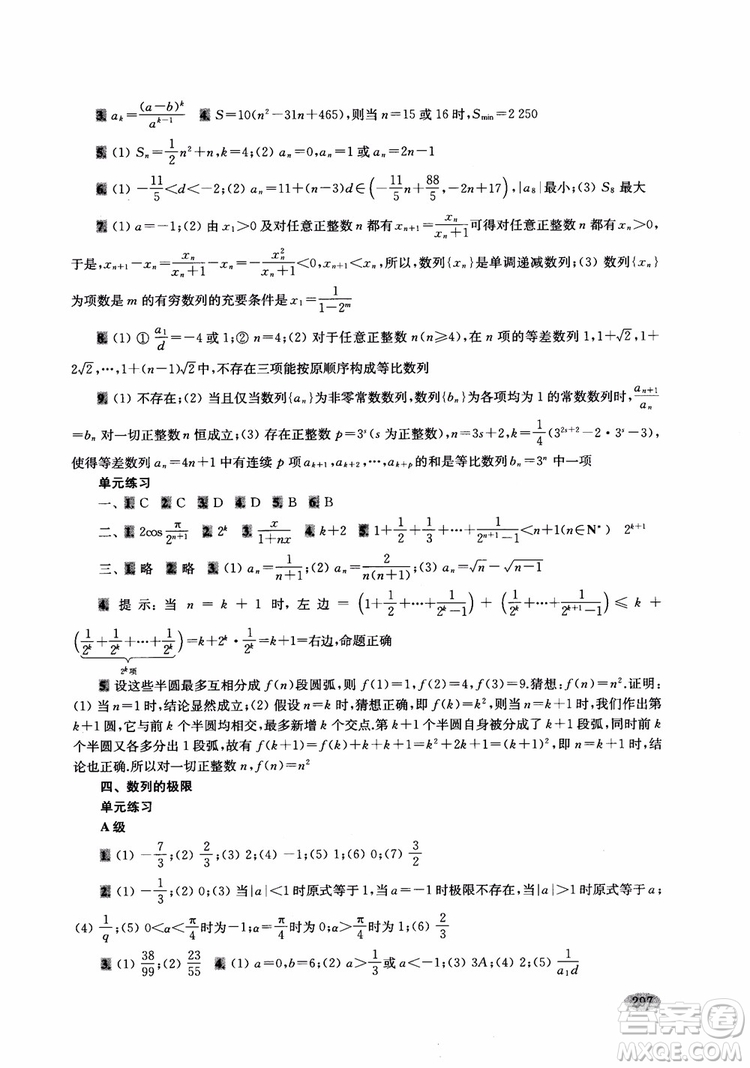 3. a_k=(a-b)^k/a^(k-1) 4. S=10(n²-31n+465),则当 n=15 或 16 时,S_min=2 250
5. (1) S_n=1/2 n²+n,k=4;(2) a_n=0,a_n=1 或 a_n=2n-1
6. (1) -11/5<d<-2;(2) a_n=11+(n-3)d∈(-11/5 n+88/5,-2n+17),|a_8|最小;(3) S_8 最大
7. (1) a=-1;(2) 由 x_1>0 及对任意正整数 n 都有 x_(n+1)=x_n/(x_n+1)可得对任意正整数 n 都有 x_n>0,
于是,x_(n+1)-x_n=x_n/(x_n+1)-x_n=-x_n²/(x_n+1)<0,x_(n+1)<x_n,所以,数列{x_n}是单调递减数列;(3) 数列{x_n}
为项数是 m 的有穷数列的充要条件是 x_1=1/(1-2^m)
8. (1) ① a_1/d=-4或1;② n=4;(2) 对于任意正整数 n(n≥4),在 n 项的等差数列 1,1+√2,1+
2√2,…,1+(n-1)√2中,不存在三项能按原顺序构成等比数列
9. (1) 不存在;(2) 当且仅当数列{a_n}为非零常数数列,数列{b_n}各项均为 1 的常数数列时,a_(n+1)/a_n
=b_n 对一切正整数 n 恒成立;(3) 存在正整数 p=3^s(s 为正整数),n=3s+2,k=1/4(3^(2s+2)-2·3^s-3),
使得等差数列 a_n=4n+1 中有连续 p 项 a_(k+1),a_(k+2),…,a_(k+p)的和是等比数列 b_n=3^n 中一项
单元练习
一、1. C 2. C 3. D 4. C 5. B 6. B
二、1. 2cos π/2^(n+1) 2. 2^k 3. x/(1+nx) 4. k+2 5. 1+1/2+1/3+…+1/(2^(n+1)-1)<n+1(n∈N*) 2^(k+1)
三、1. 略 2. 略 3. (1) a_n=1/(n+1);(2) a_n=2/(n(n+1));(3) a_n=√n-√(n-1)
4. 提示:当 n=k+1 时,左边=(1+1/2+…+1/(2^k-1))+(1/2^k+…+1/(2^(k+1)-1))≤k+
(1/2^k+1/2^k+…+1/2^k)=k+2^k·1/2^k=k+1=右边,命题正确
2^k项
5. 设这些半圆最多互相分成 f(n)段圆弧,则 f(1)=1,f(2)=4,f(3)=9.猜想:f(n)=n².证明:
(1) 当 n=1 时,结论显然成立;(2) 假设 n=k 时,猜想正确,即 f(k)=k²,则当 n=k+1 时,我们作出第
k+1 圆,它与前 k 个半圆均相交,最多新增 k 个交点.第 k+1 个半圆自身被分成了 k+1 段弧,同时前 k
个半圆又各多分出 1 段弧,故有 f(k+1)=f(k)+k+k+1=k²+2k+1=(k+1)²,即 n=k+1 时,结
论也正确.所以对一切正整数 n,f(n)=n²
四、数列的极限
单元练习
A 级
1. (1) -7/3;(2) 2/3;(3) 2;(4) -1;(5) 1;(6) 0;(7) 3/2
2. (1) -1/3;(2) 0;(3) 当|a|<1 时原式等于 1,a=-1 时极限不存在,当|a|>1时原式等于 a;
(4) 1/q;(5) 0<α<π/4时为-1;α=π/4时为 0;(6) 2/3
3. (1) 38/99;(2) 23/55 4. (1) a=0,b=6;(2) a>1/3或 a<-1;(3) 3A;(4) 2;(5) 1/(a_1d)
297
答案圈